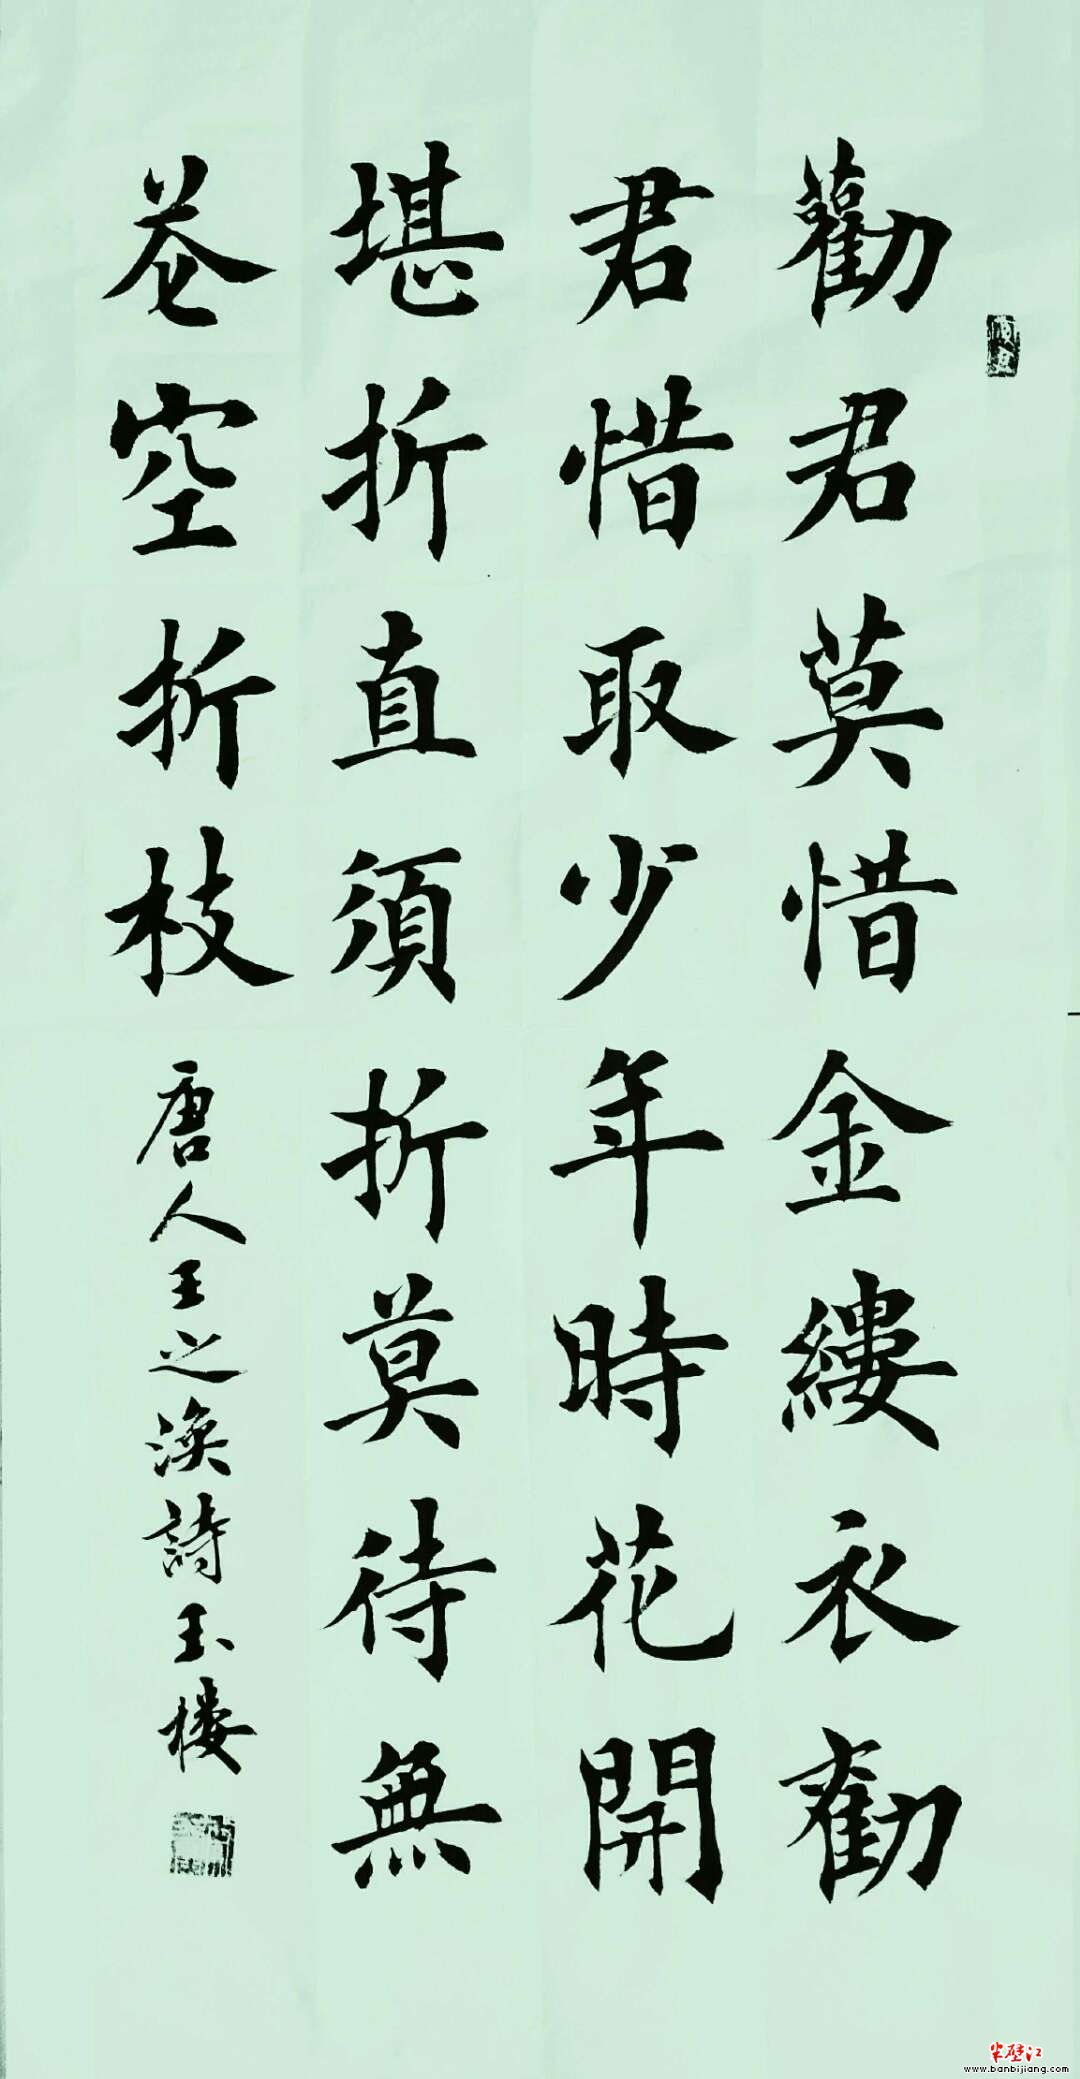 勸君莫惜金縷衣勸
君惜取少年時花開
堪折直須折莫待無
花空折枝
唐人王之渙詩玉樓
半壁江
www.banbijiang.com